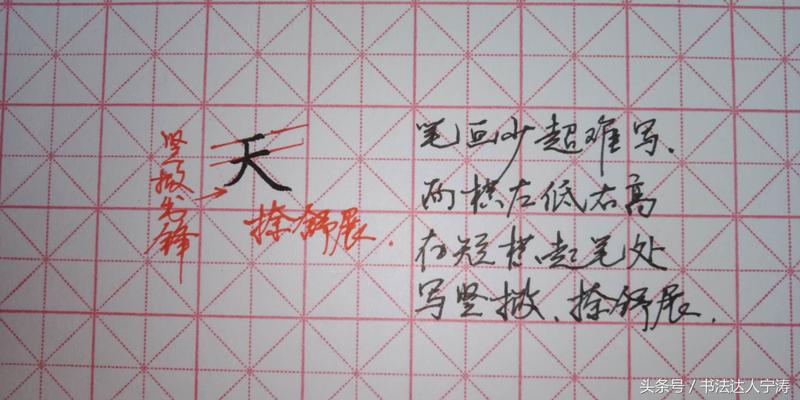 天
竖撇出锋
捺舒展.
笔画少超难写.
两横左低右高
在短横起笔处
写竖撇、捺舒展.
头条号／书法达人宁涛